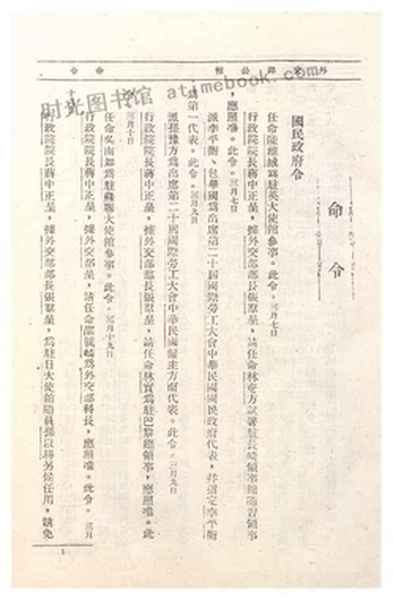 外交部公報
命令
命令
國民政府令
任命陳維城為駐英大使館參事。此令。三月七日
行政院院長蔣中正呈，據外交部部長張羣呈，請任命林
領事
，應照准。此令。三月七日
派李平衡、包華國為出席第二十屆國際勞工大會中華民國國民政府代表，並指定李平衡
為第一代表。此令。三月九日
派 為出席第二十屆國際勞工大會中華民國僱主方面代表。此令。三月九日
行政院院長蔣中正呈，據外交部部長張羣呈，請任命林實為駐巴黎總領事，應照准。此
令。三月十日
任命吳南如為駐蘇聯大使館參事。此令。三月十九日
行政院院長蔣中正呈，據外交部部長張羣呈，請任命 為外交部科長，應照准。此令。三月
行政院院長蔣中正呈，據外交部部長張羣呈，為駐日大使館隨員 另候任用，請免
1
时光图书馆 atimebook.com